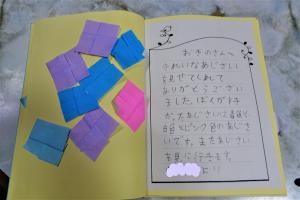 おぎのさんへ
きれいなあじさい
を見せてくれて
ありがとうござい
ました。ぼくがすき
だったあじさいは
白色とピンク色のあじさ
いです。またあじさい
を見に行きます。
より